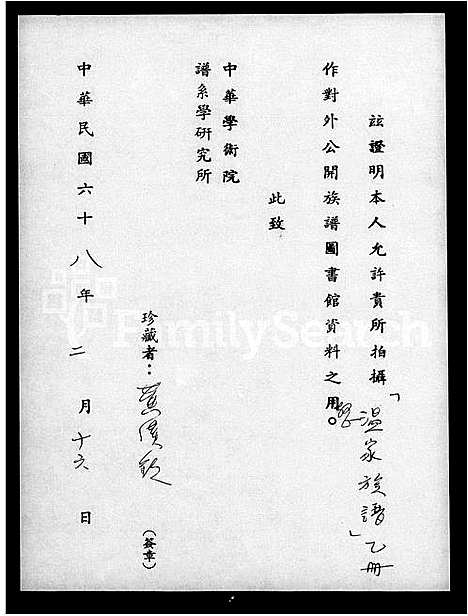 茲證明本人允許貴所拍攝「溫家族譜」乙冊
作對外公開族譜圖書館資料之用。
此致
中華學術院
譜系學研究所
珍藏者：黃 (簽章)
中華民國六十八年二月十六日
FamilySearch